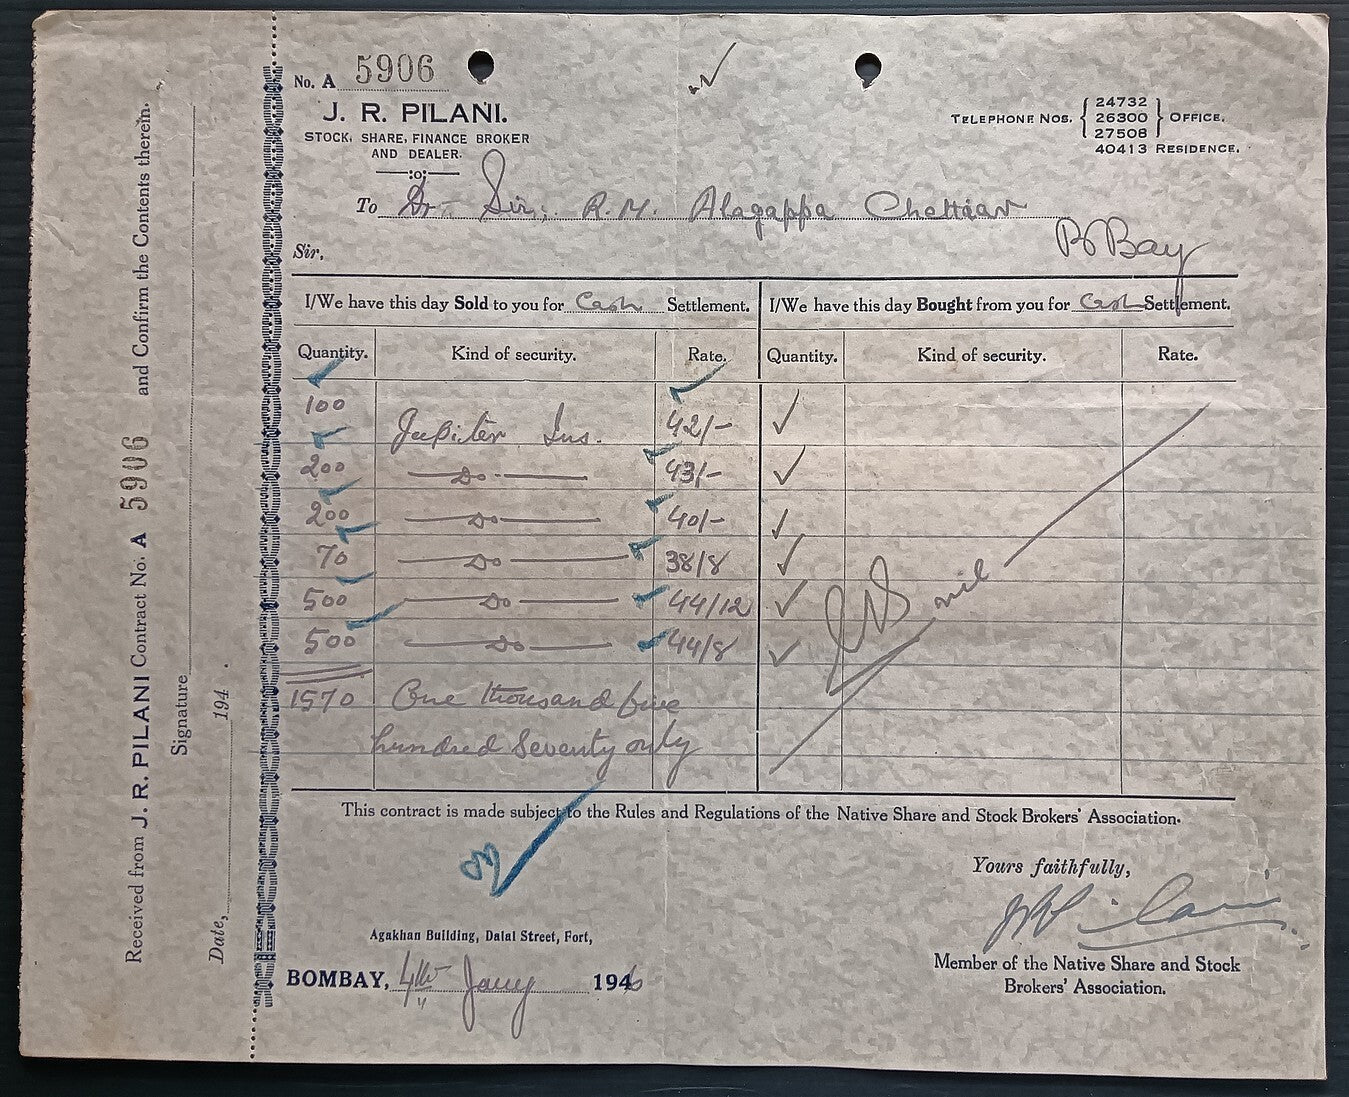 No. A 5906
J. R. PILANI.
STOCK, SHARE, FINANCE BROKER
AND DEALER.
—:o:—
TELEPHONE NOS. { 24732 26300 27508 } OFFICE.
40413 RESIDENCE.
To Dr. Sir, R. M. Alagappa Chettiar
BBay
Sir,
I/We have this day Sold to you for Cash Settlement. I/We have this day Bought from you for Cash Settlement.
Quantity. Kind of security. Rate. Quantity. Kind of security. Rate.
100 Jupiter Ins. 42/-
200 — Do — 43/-
200 — Do — 40/-
70 — Do — 38/8
500 — Do — 44/12
500 — Do — 44/8
nil
1570 One thousand five
hundred Seventy only
This contract is made subject to the Rules and Regulations of the Native Share and Stock Brokers' Association.
Yours faithfully,
JRPilani
Member of the Native Share and Stock
Brokers' Association.
Agakhan Building, Dalal Street, Fort,
BOMBAY, 4th Jany 1946
Received from J. R. PILANI Contract No. A 5906 and Confirm the Contents therein.
Signature
Date, 194 .